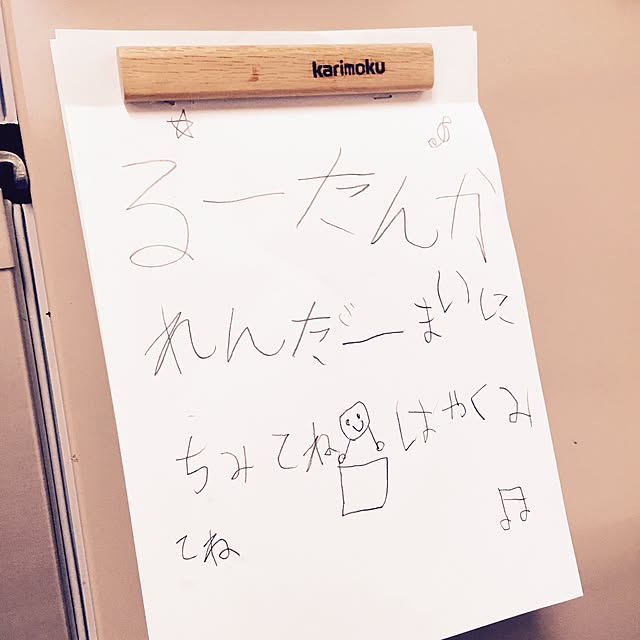 karimoku
るーたんか
れんだーまいに
ちみてねはやくみ
てね